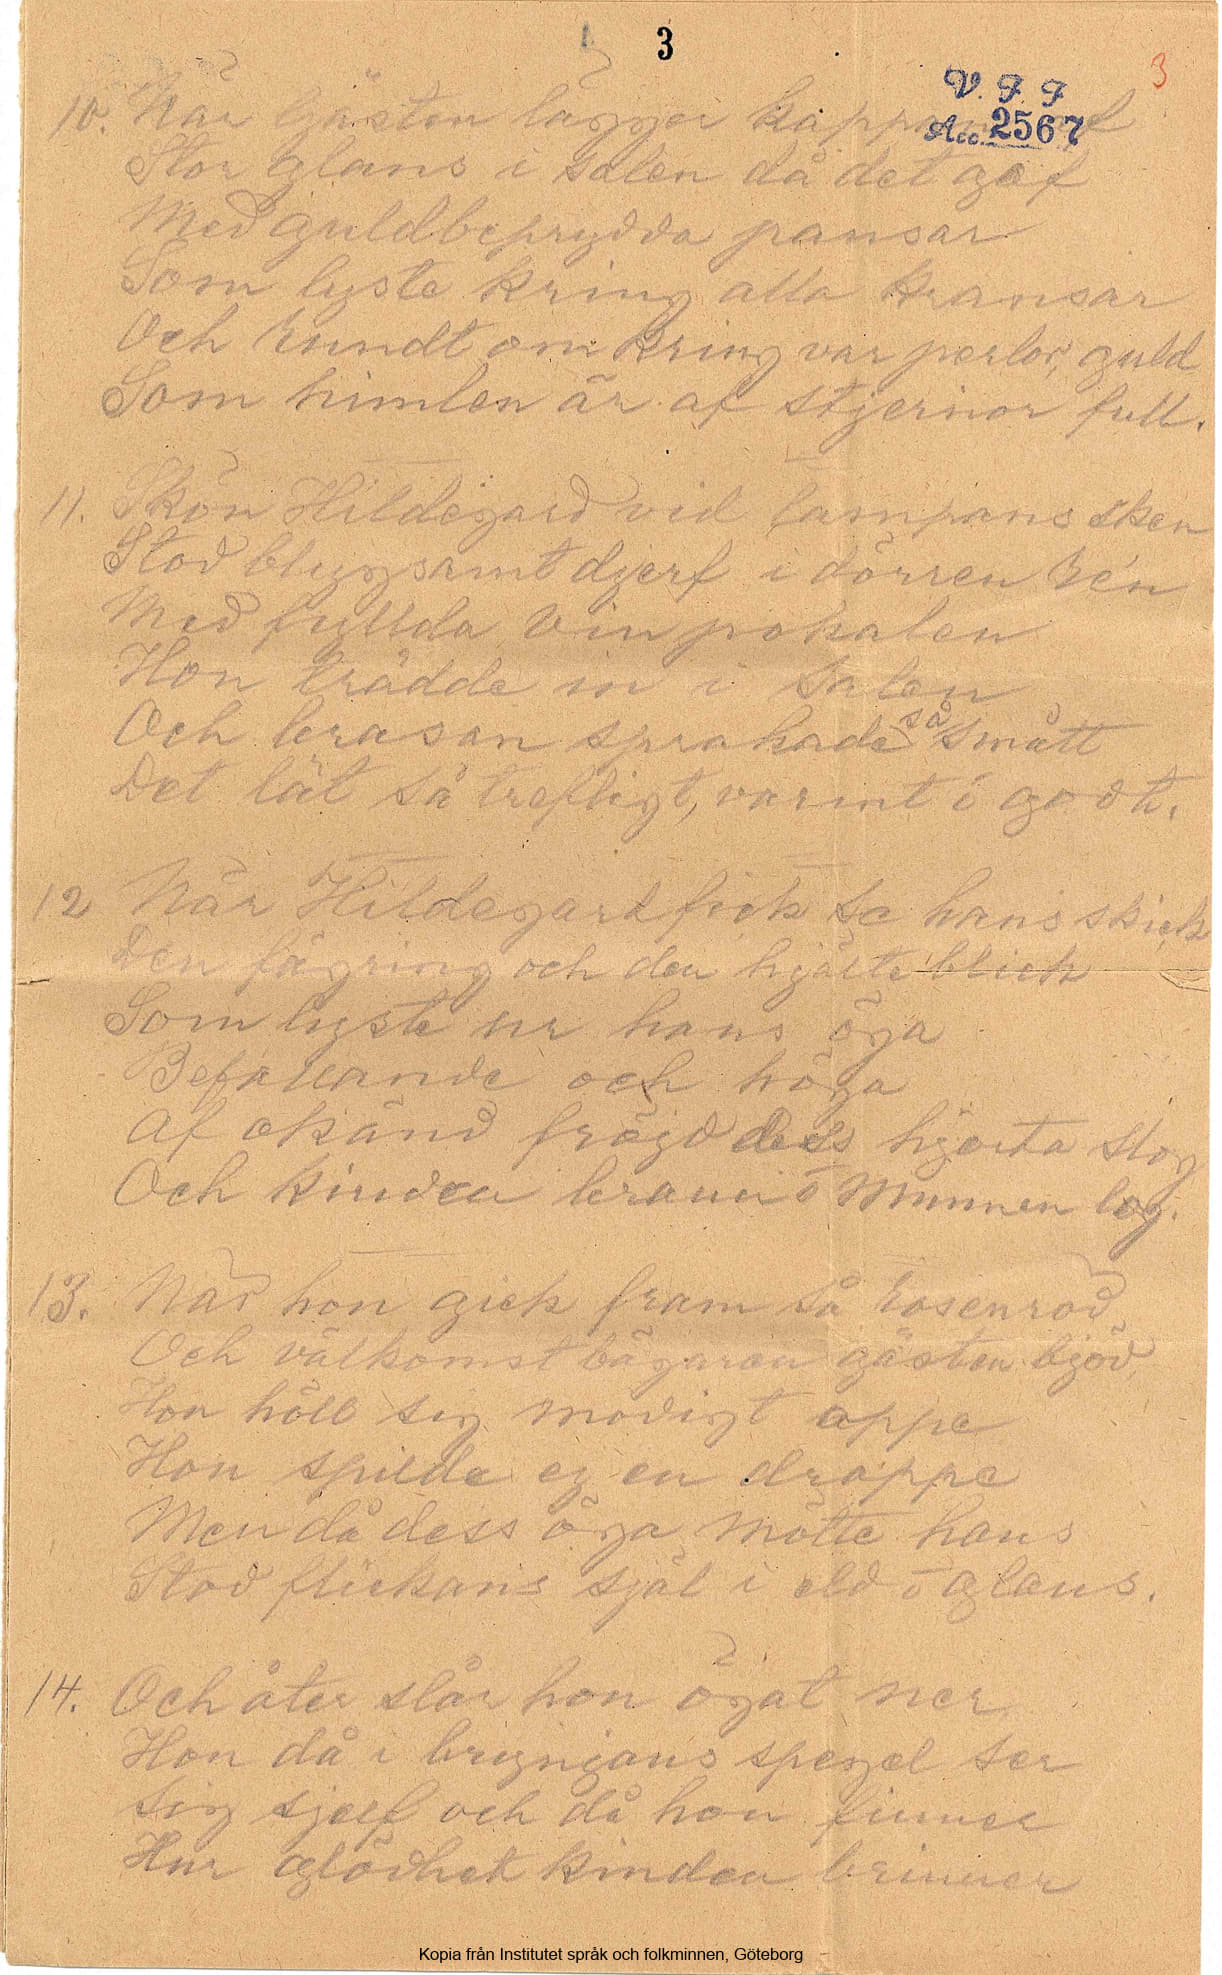 3
3
V. F. F
Acc. 2567
10. När gästen lägger kappan af
Stor glans i salen då det gaf
Med guldbeprydda pansar
Som lyste kring alla kransar
Och rundt om kring var perlor, guld
Som himlen är af stjernor full.
11. Skön Hildegard vid lampans sken
Stod blygsamt djerf i dörren ren
Med fyllda vin pokalen
Hon trädde in i salen
Och brasan sprakade så smått
Det lät så trefligt, varmt ö godt.
12 När Hildegard fick se hans skick
Den fägring och den hjälte blick
Som lyste ur hans öga
Befallande och höga
Af okänd fröjd dess hjerta slog
Och kinden brann ö Munnen log.
13. När hon gick fram så rosenröd
Och välkomst bägaren gästen bjöd,
Hon höll sig modigt oppe
Hon spilde ej en droppe
Men då dess öga mötte hans
Stod flickans själ i eld ö glans.
14. Och åter slår hon ögat ner
Hon då i brynjans spegel ser
Sig sjelf och då hon finner
Hur glödhet kinden brinner
Kopia från Institutet språk och folkminnen, Göteborg